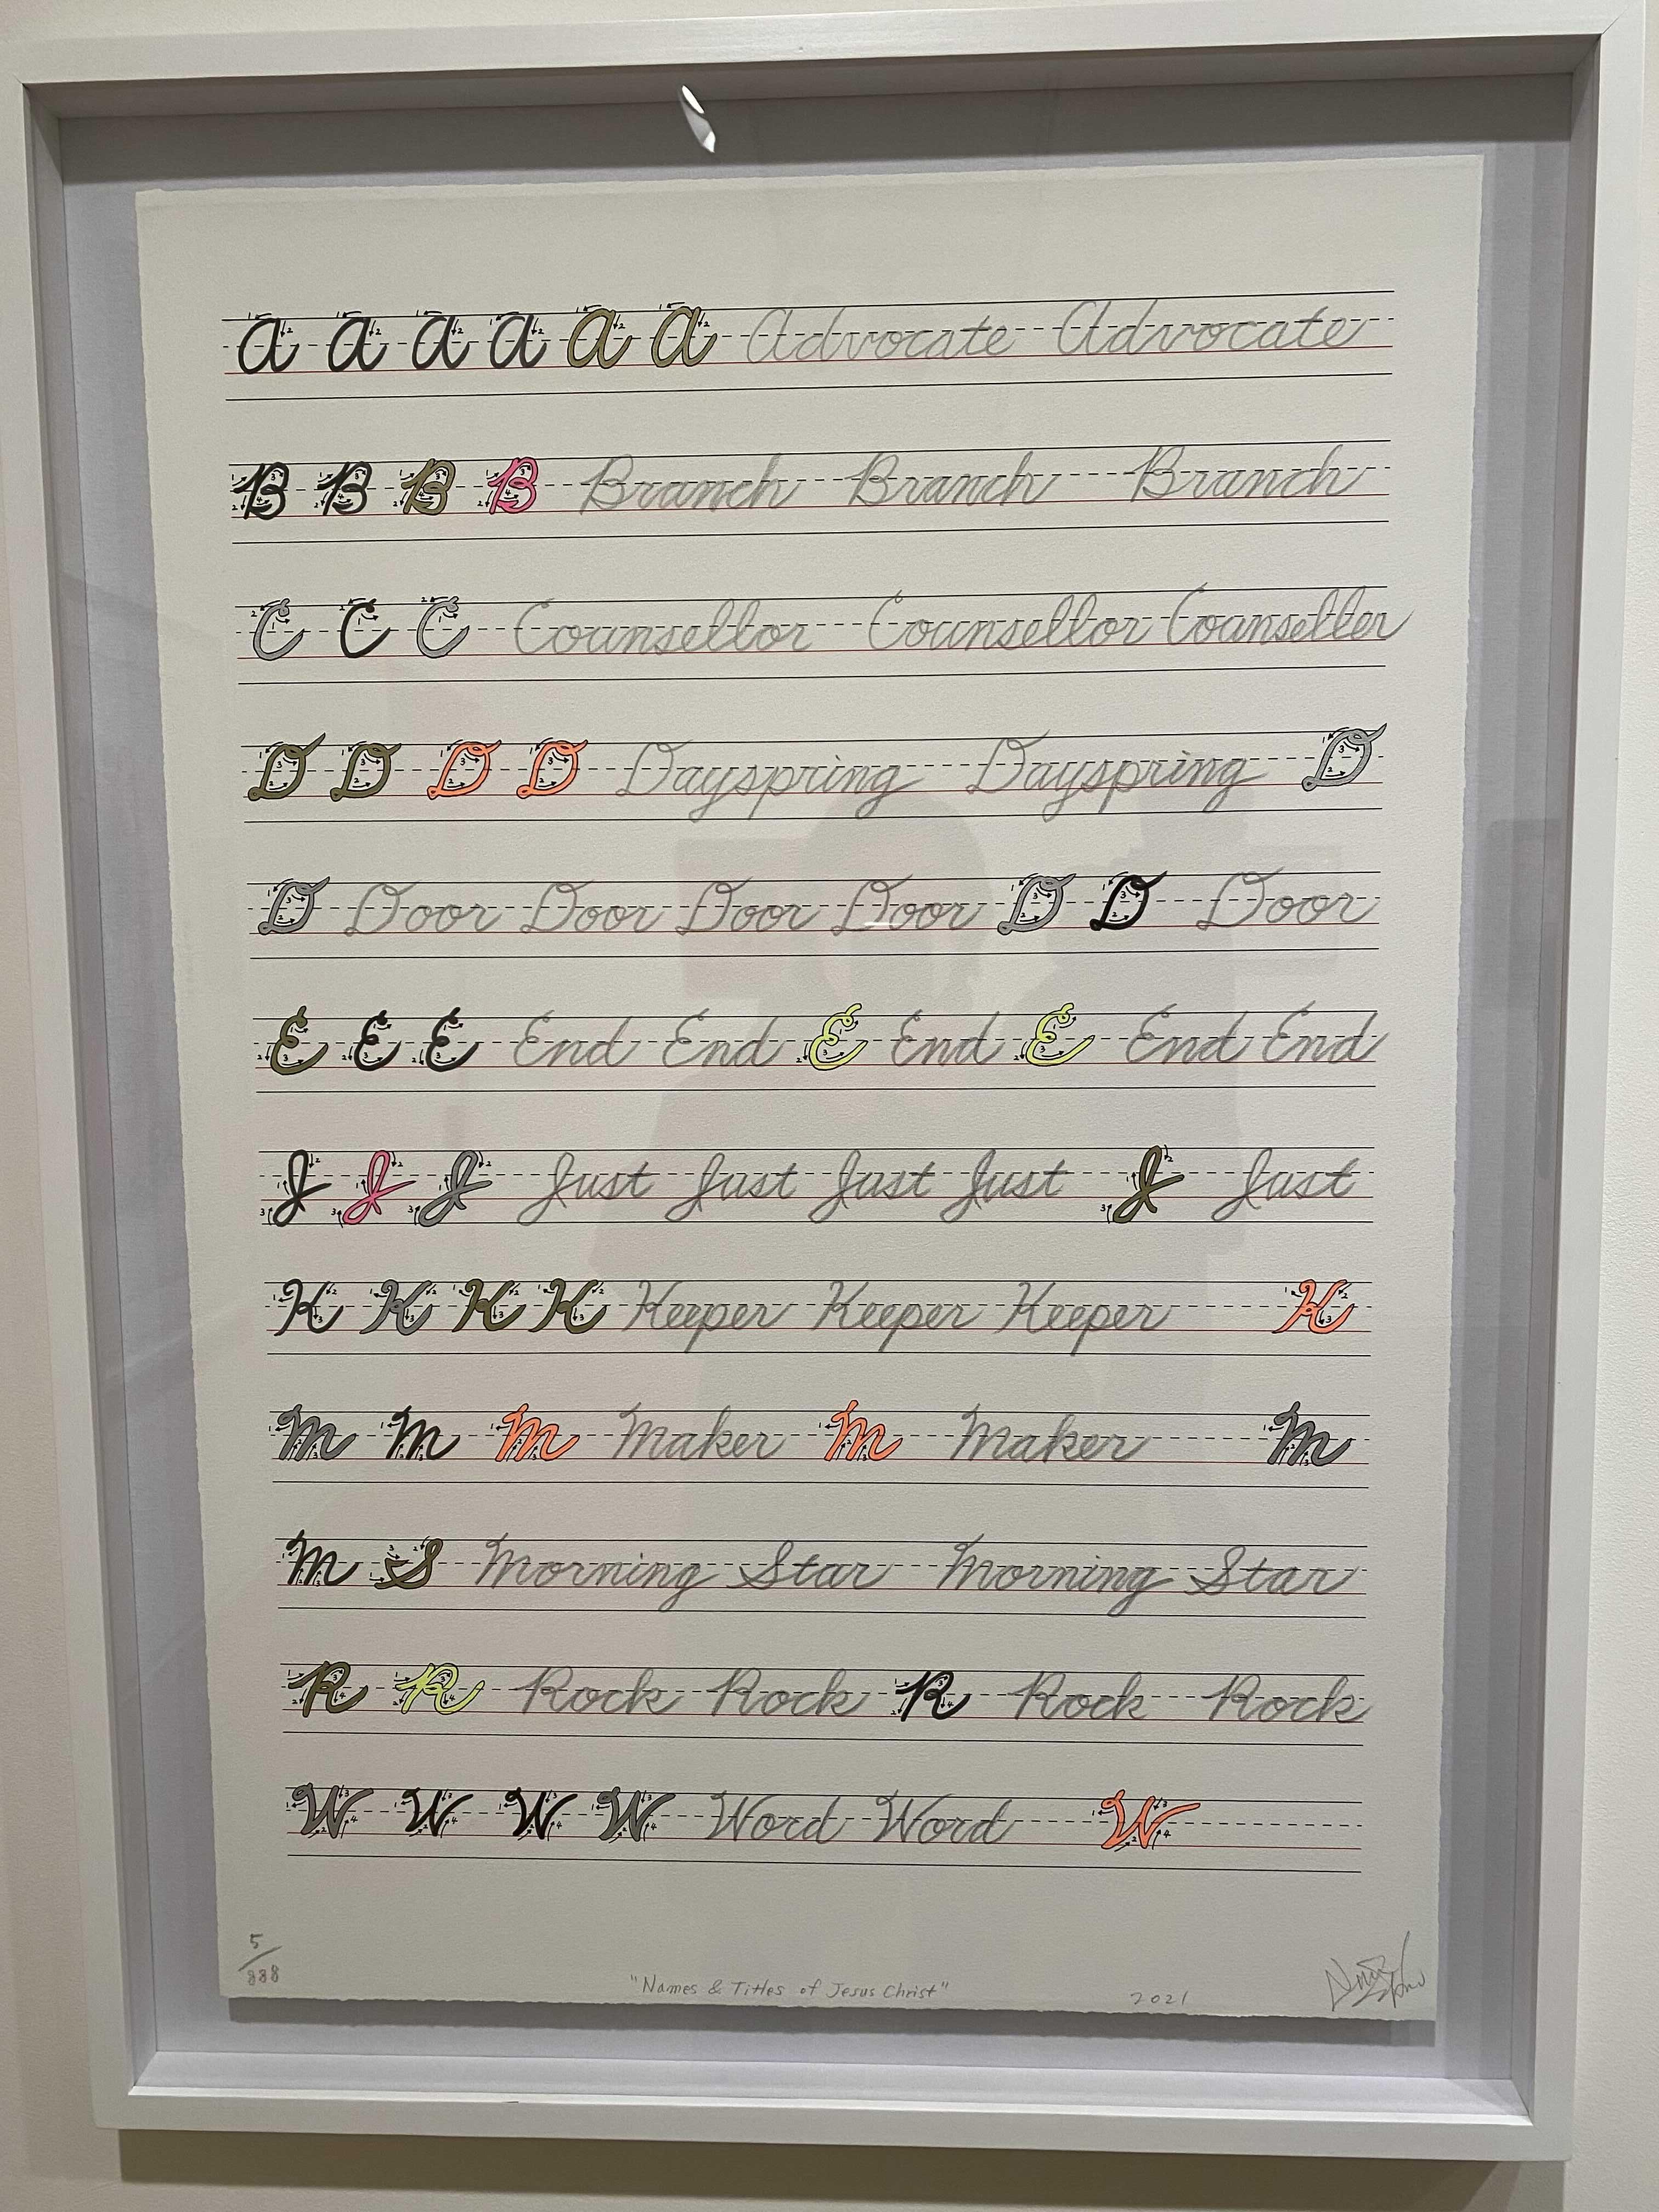 A A A A A A Advocate Advocate
B B B B Branch Branch Branch
C C C Counsellor Counsellor Counsellor
D D D D Dayspring Dayspring D
D Door Door Door Door D D Door
E E E End End E End E End End
J J J Just Just Just Just J Just
K K K K Keeper Keeper Keeper K
M M M Maker M Maker M
M S Morning Star Morning Star
R R Rock Rock R Rock Rock
W W W W Word Word W
5/888
"Names & Titles of Jesus Christ" 2021